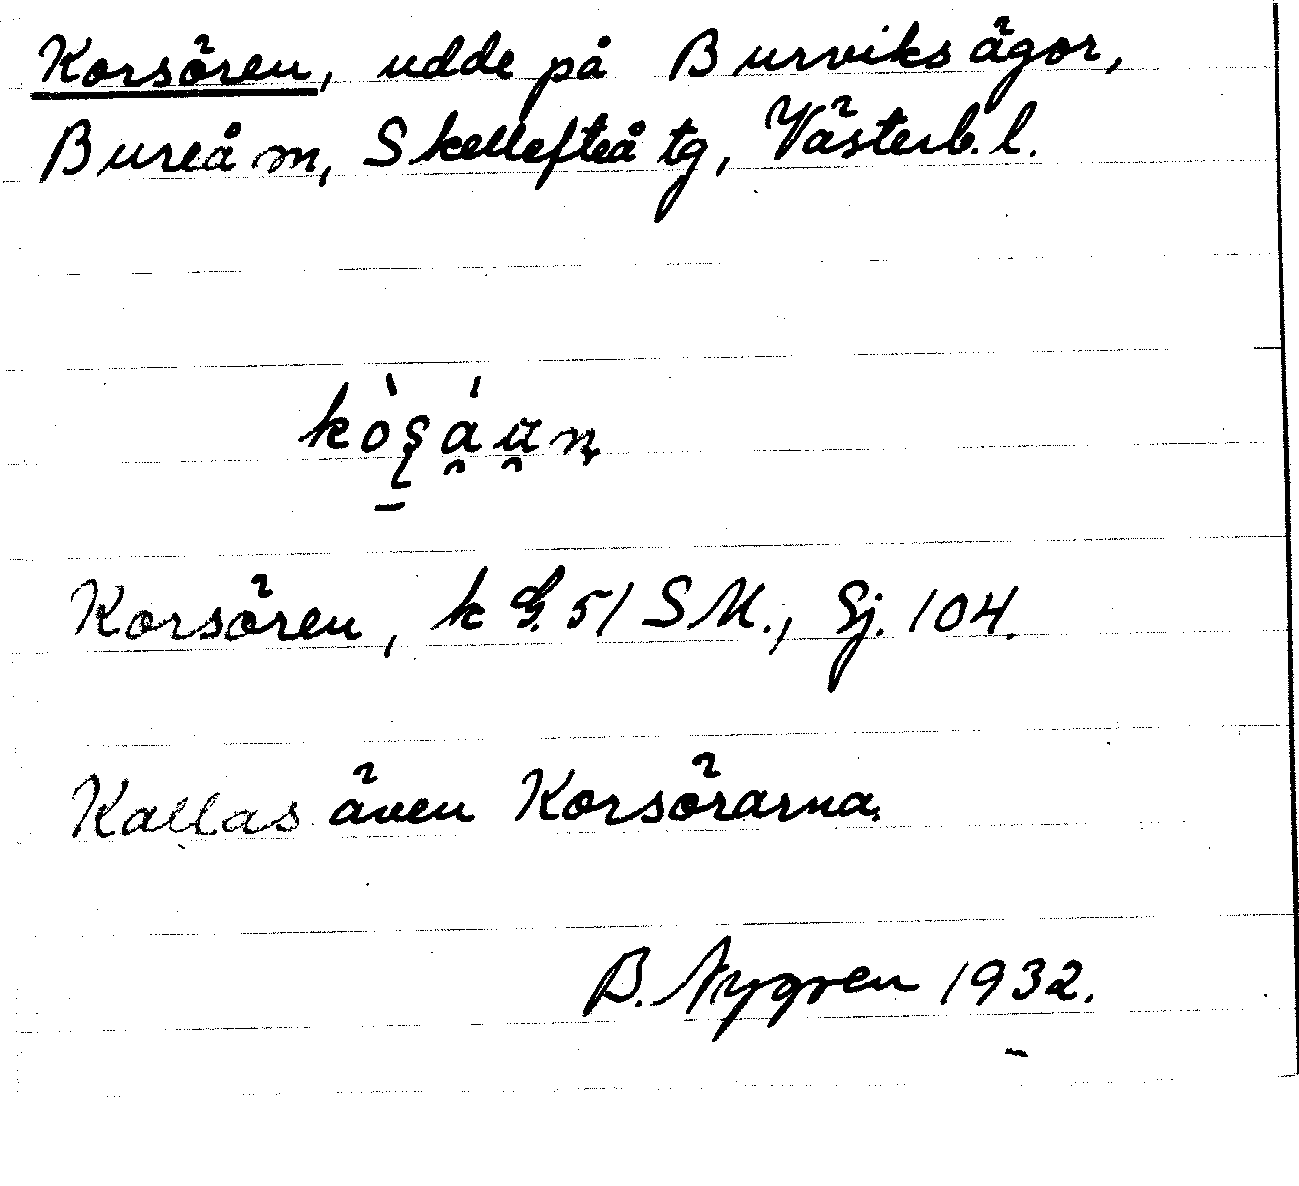 Korsören, udde på Burviks ägor,
Bureå m, Skellefteå tg, Västerb. l.
Korsören, k G. 51 SM., Sj. 104.
Kallas även Korsörarna.
B. Nygren 1932.